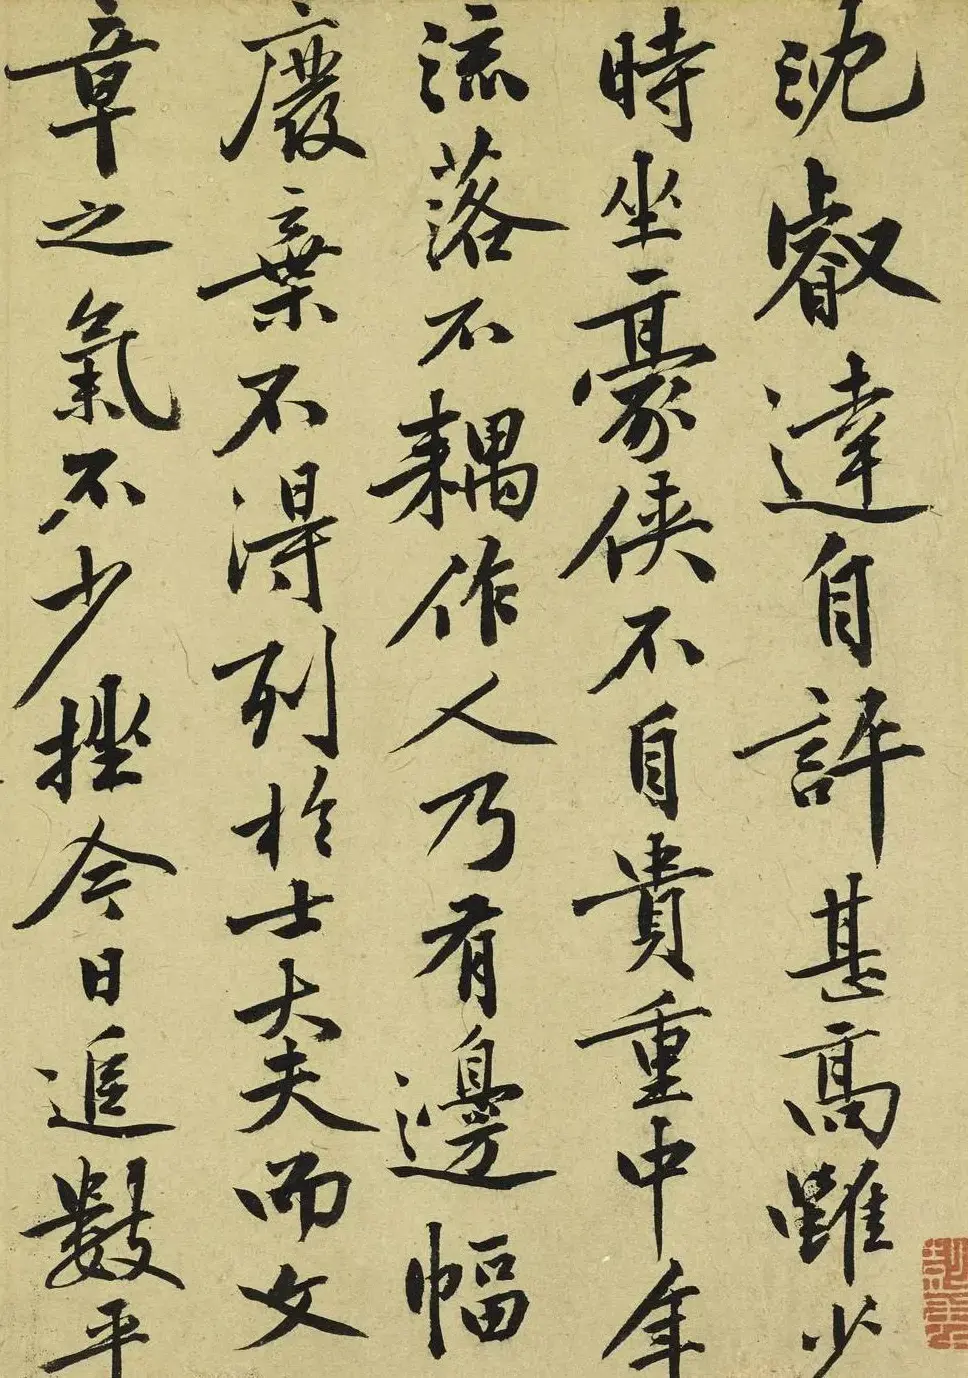 沈睿達自許甚高雖少
時坐豪俠不自貴重中年
流落不耦作人乃有邊幅
廢棄不得列於士大夫而文
章之氣不少挫今日追數平